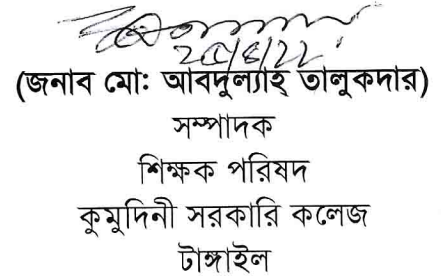 (জনাব মো: আবদুল্যাহ্ তালুকদার)
সম্পাদক
শিক্ষক পরিষদ
কুমুদিনী সরকারি কলেজ
টাঙ্গাইল